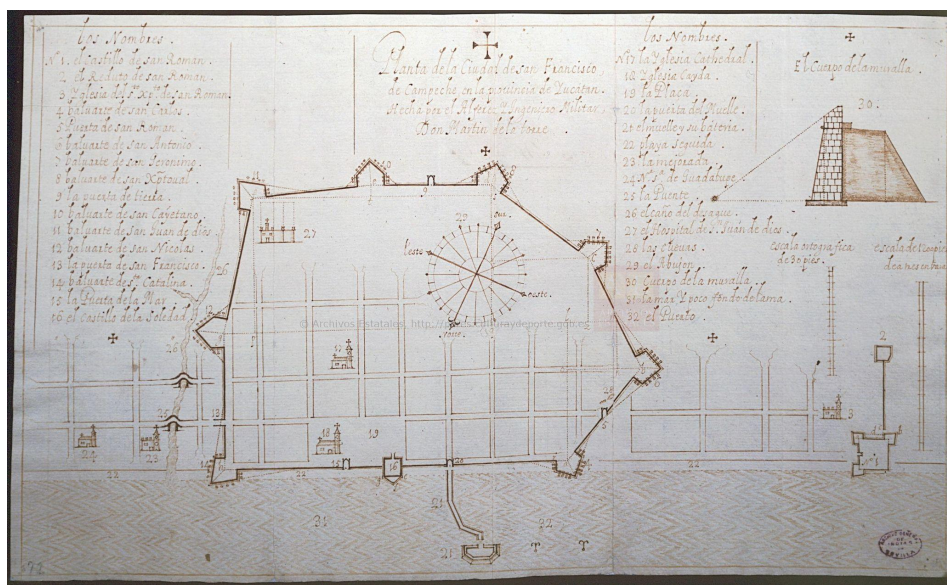 Los Nombres.
Nº 1. el Castillo de san Roman.
2 El Reduto de san Roman.
3 Yglesia del sto. Xpto. de san Roman
4 baluarte de san Carlos.
5 Puerta de san Roman.
6 baluarte de san Antonio.
7 baluarte de san Jeronimo.
8 baluarte de san Xptoual.
9 la puerta de tierra.
10 baluarte de san Cayetano.
11 baluarte de san Juan de dios
12 baluarte de san Nicolas.
13 la puerta de san Francisco.
14 baluarte de sta. Catalina.
15 la Puerta de la Mar.
16 el castillo de la Soledad.
Planta de la Ciudad de san Francisco
de Campeche en la prouincia de Yucatan.
Hecha por el Alferez y Ingeniero Militar
Don Martin de la torre.
los Nombres.
Nº 17 la Yglesia Cathedral.
18 Yglesia Cayda.
19 la Plaça.
20 la puerta del Muelle.
21 el muelle y su bateria.
22 playa seguida.
23 la mejorada.
24 Nª Sª de Guadalupe.
25 la Puente.
26 el caño del desague.
27 el Hospital de S. Juan de dios.
28 las Cueuas.
29 el Abujon.
30 Cuerpo de la muralla.
31 la mar y poco fondo de lama.
32 el Puerto.
El Cuerpo de la muralla.
30.
escala ortografica
de 30 pies.
escala de
11
10
9
27
29
sur.
leste
oeste.
norte
26
26
17
18
19
25
13
24
23
14
22
22
15
16
20
21
21
31
32
22
2
3
1
© Archivos Estatales,
ARCHIVO GENERAL
DE
INDIAS
SEVILLA
72